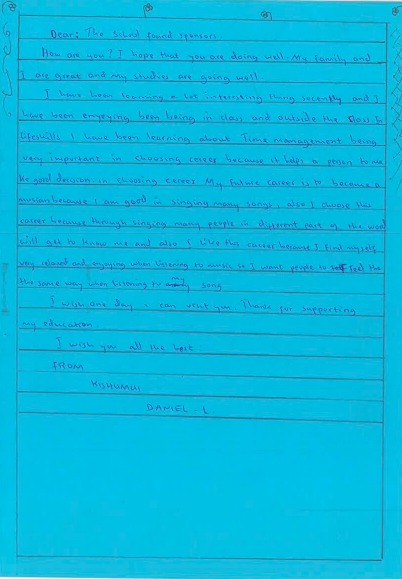 Dear: The School found sponsors.
How are you? I hope that you are doing well. My Family and
I are great and my studies are going well.
I have been learning a lot interesting thing recently and I
have been enyoying been being in class and outside the class. In
Lifeskills I have been learning about Time management being
very important in choosing career because it helps a person to make
the good decision in choosing career. My future career is to become a
musian because I am good in singing many songs, also I choose this
career because through singing many people in different part of the world
will get to know me and also I like this career because I find myself
very relaxed and enyoying when listening to music so I want people to feel the
the same way when listening to my song
I wish one day I can visit you. Thanks for supporting
my education.
I wish you all the best.
FROM
KISHUMUI
DANIEL - L